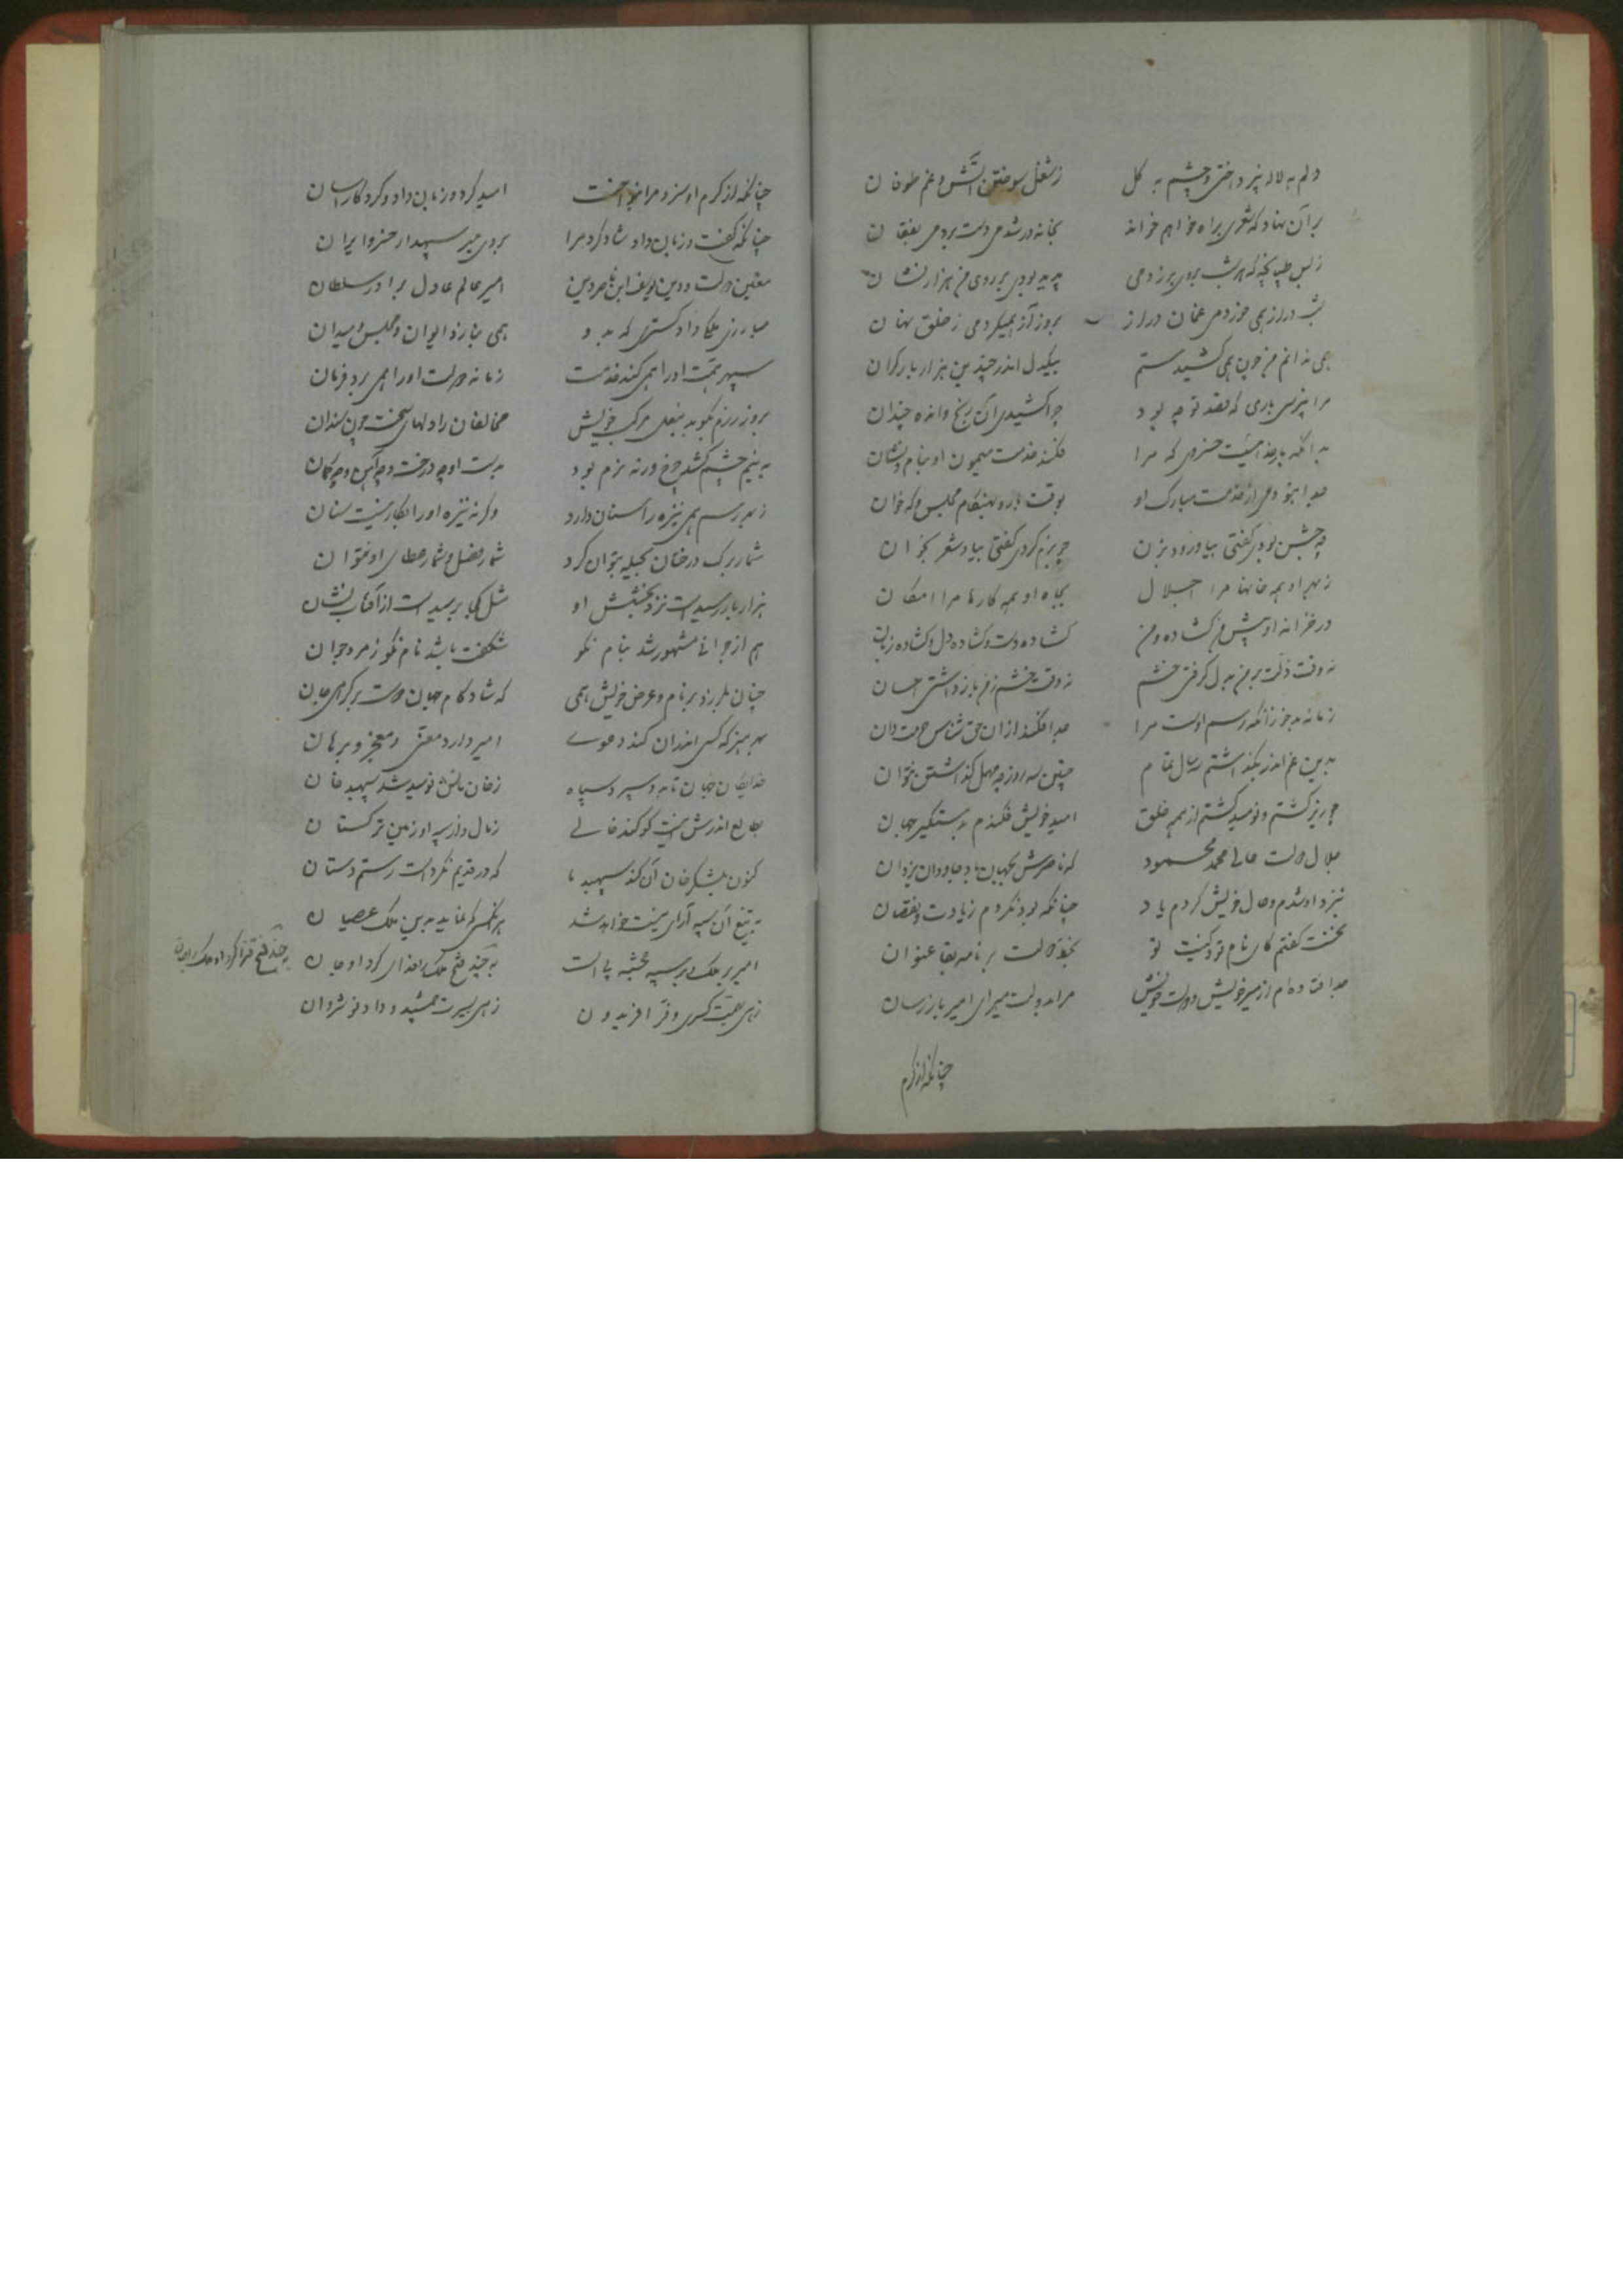 دلم به لاله نپرداختی و چشم به گل زشغل سوختن آتش و غم طوفان
بر آن نهاد که شعری براه خواهم خواند بخانه در شدمی دست بردمی بفغان
زبس طپانچه که هر شب بروی برزدمی پدید بودی بر روی من هزار نشان
شب دراز همی خوردمی غمان دراز بروز راز همیکردمی زخلق نهان
همی ندانم من چون همی کشید ستم بیکدل اندر چندین هزار بار گران
مرا نپرسی باری که قصد تو چه بود چرا کشیدی آن رنج و انده چندان
بدانکه بار خداییست خسروی که مرا فکند خدمت میمون او بنام و نشان
جدا نبودمی از خدمت مبارک او بوقت بار و بهنگام مجلس و گه خوان
چه جشن بودی گفتی بیا و رود بزن چو بزم کردی گفتی بیا و شعر بخوان
زبهر او بهمه خانها مرا اجلال بجاه او بهمه کارها مرا امکان
در خزانه او پیش من گشاده و من گشاده دست و گشاده دل و گشاده زبان
نه وقت زلت بر من بدل گرفتی خشم نه وقت خشم زمن باز داشتی احسان
زمانه بد خو زانکه رسم اوست مرا جدا فکند از آن حق شناس حرمت دان
بدین غم اندر بگذاشتم سه سال تمام چنین سه روز چه مهمل گذاشتن نتوان
چو زیر گشتم و نومید گشتم از همه خلق امید خویش فکندم بدستگیر جهان
جلال دولت عالی محمد محمود که ناصرش بجهان باد جاودان یزدان
بنزد او شدم و حال خویش کردم یاد چنانکه بود نکردم زیادت و نقصان
نخست گفتم کای نام تو و کنیت تو بخط دولت بر نامه بقا عنوان
جدا فتاده ام از میر خویش و دولت خویش مرا بدولت میر ای امیر باز رسان
چنانکه از کرم
چنانکه از کرم او سزد مرا بنواخت امید کرد و زبان داد و کرد کار آسان
چنانکه گفت و زبان داد شاد کرد مرا بروی میر سپهدار خسرو ایران
معین دولت و دین یوسف ابن ناصر دین امیر عالم عادل برادر سلطان
مبارزی ملکا داد گستری که بدو همی بنازد ایوان و مجلس و میدان
سپهر همت او را همی کند خدمت زمانه دولت او را همی برد فرمان
بروز رزم بکوبد بنعل مرکب خویش مخالفان را دلهای سخت چون سندان
به نیم چشم کشد چرخ ورنه بزم بود بدست او چه درخت و چه آهن و چه کمان
زبهر رسم همی نیزه را سنان دارد وگرنه نیزه او را بکار نیست سنان
شمار برگ درختان بحیله بتوان کرد شمار فضل و شمار عطای او نتوان
هزار بار رسیدست نزد بخشش او مثل یکی نرسیدست از آفتاب نشان
هم از جوانی مشهور شد بنام نکو شگفت باشد نام نکو ز مرد جوان
چنان بلرزد بر نام و عرض خویش همی که شاد کام جهان دوست بر گرامی جان
بهر هنر که کسی اندر آن کند دعوی امیر دارد معنی و معجز و برهان
خدایگان جهان تا بدو سپرد سپاه زخان و مانش نومید شد سپهبد خان
بطالع اندرش اینست کو کند خالی ز مال و از سپه او زمین ترکستان
کنون بلشکر خان آن کند سپهبد ما که در قدیم نکردست رستم دستان
به تیغ آن سپه آرای نیست خواهد شد هر آنکسی که نماید بدین ملک عصیان
امیر بر ملک و بر سپه خجسته پی است به چند فتح ملک را فدای کرد او جان
به چند فتح قرا کرد
زهی بهیبت کسری و فر افریدون زهی بسیرت جمشید و داد نوشروان